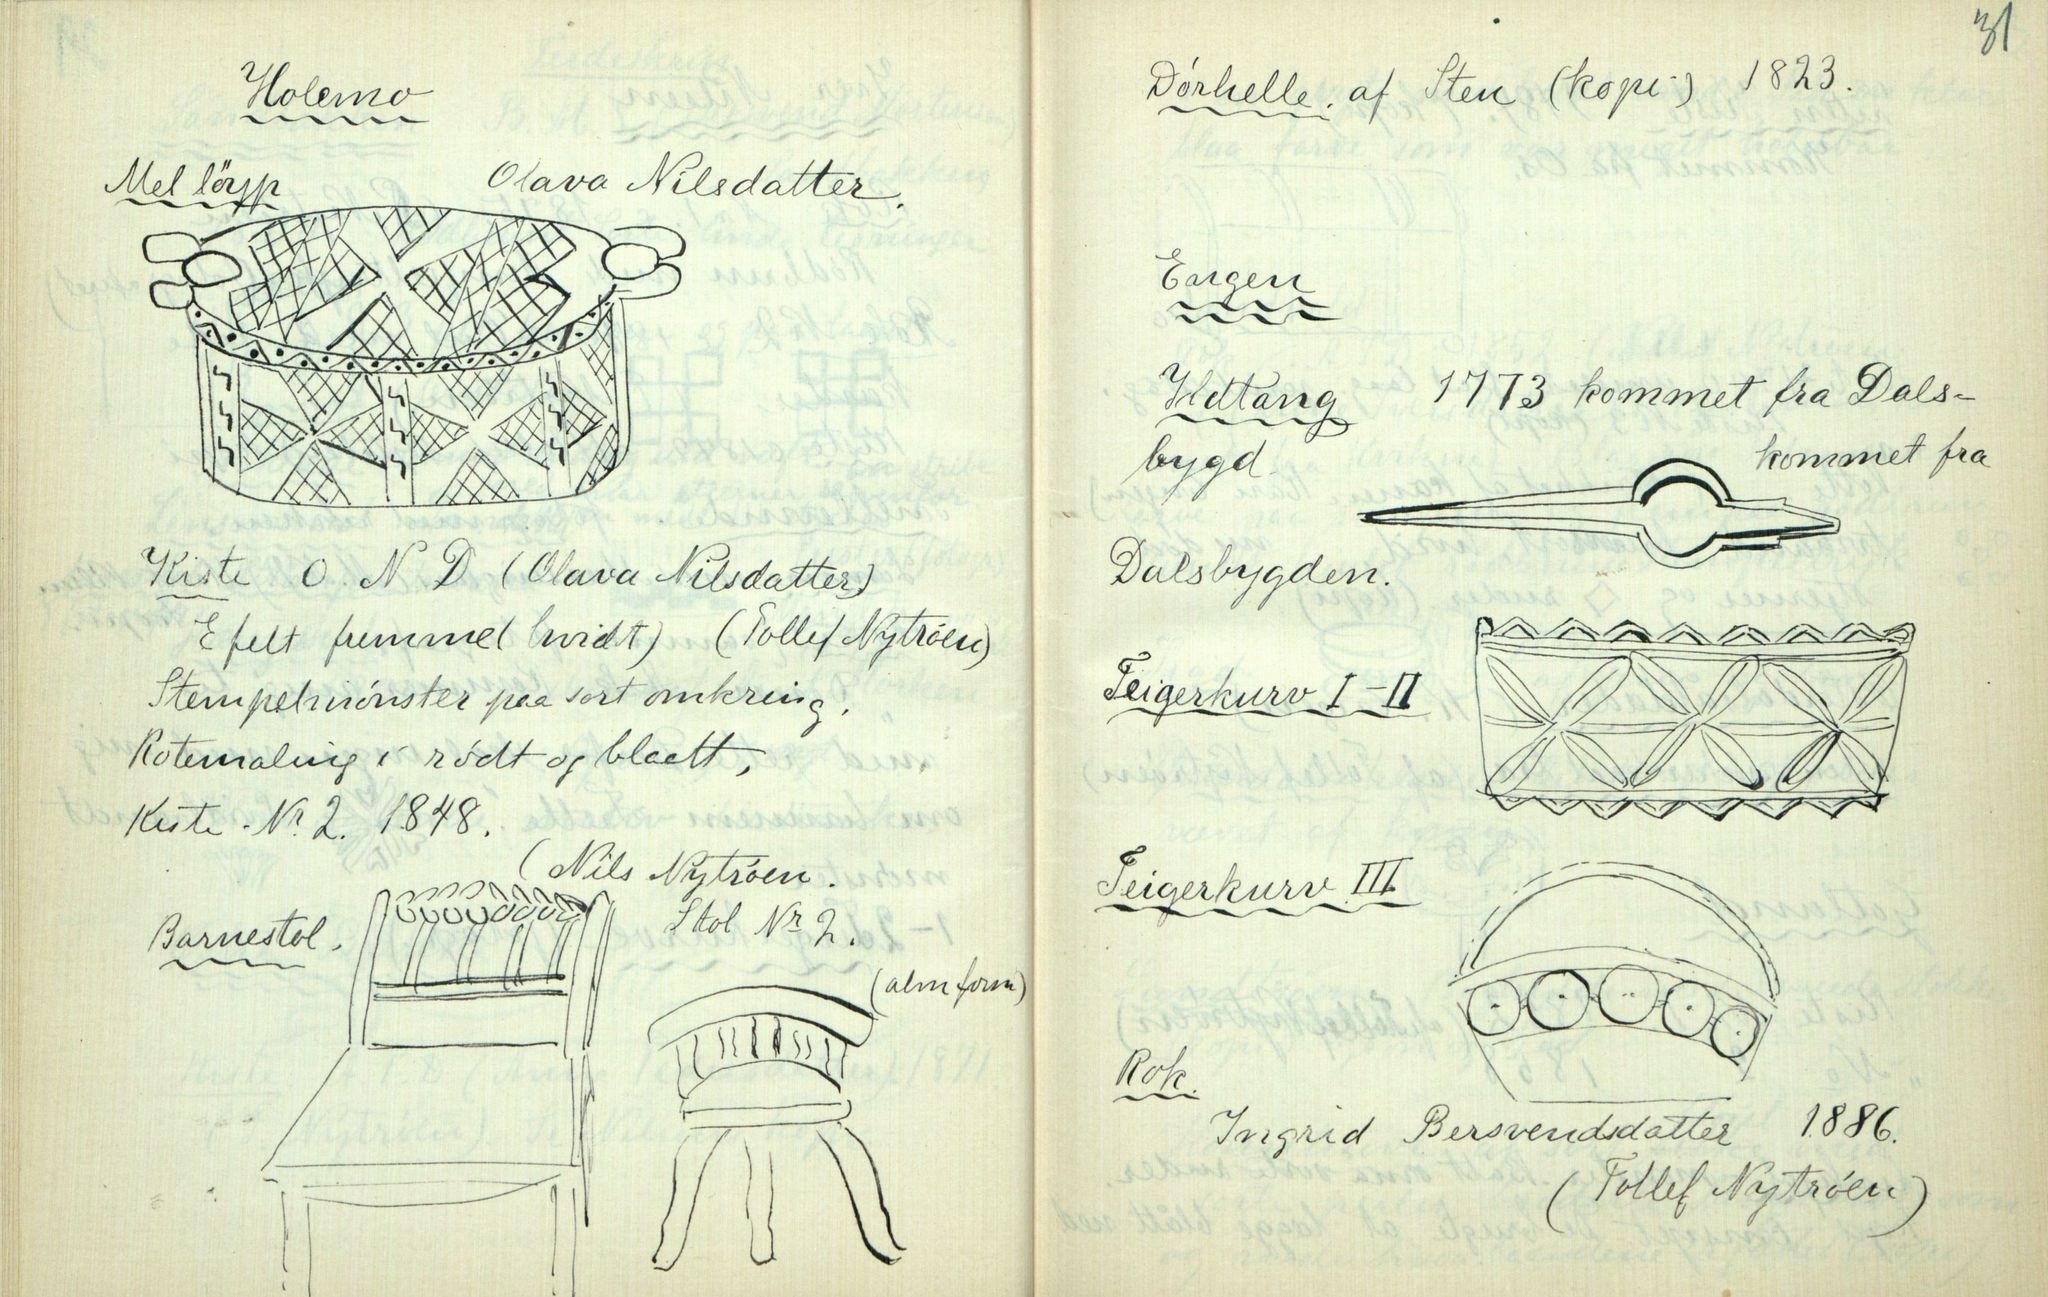 Holemo
Mel löyp Olava Nilsdatter.
Kiste O. N D (Olava Nilsdatter)
E felt fummel hvidt) (Tollef Nytröen)
Stempelmönster paa sort omkring.
Rotemaling i rödt og blaett,
Kiste Nr. 2. 1848.
(Nils Nytröen.
Barnestol.
Stol Nr 2.
(alm form)
31
Dörhelle. af Sten (kopi) 1823.
Engen
Ildtang 1773 kommet fra Dals-
bygd
kommet fra
Dalsbygden.
Teigerkurv I-II
Teigerkurv III
Rok.
Ingrid Bersvendsdatter 1886.
(Tollef Nytröen)